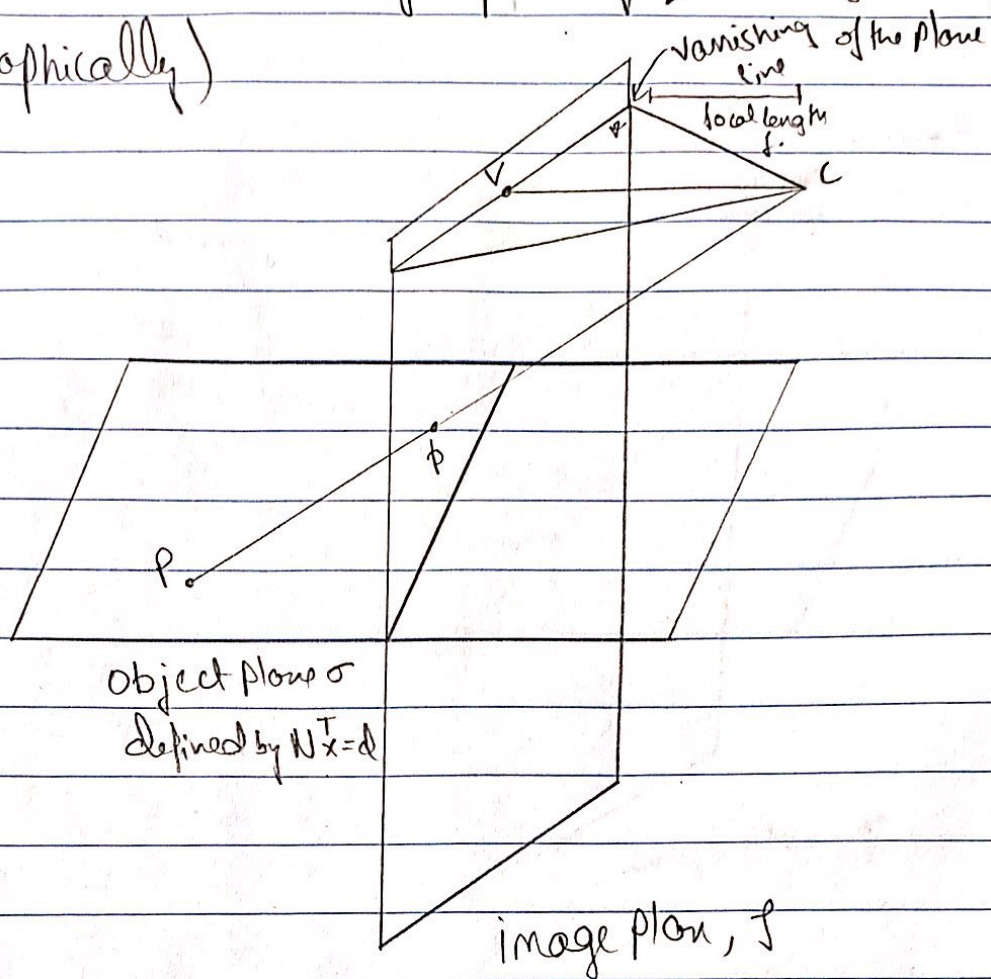 ophically)
vanishing of the plane
line
focal length
f.
V
C
p
P
object plane σ
defined by Nᵀx=d
image plan, I